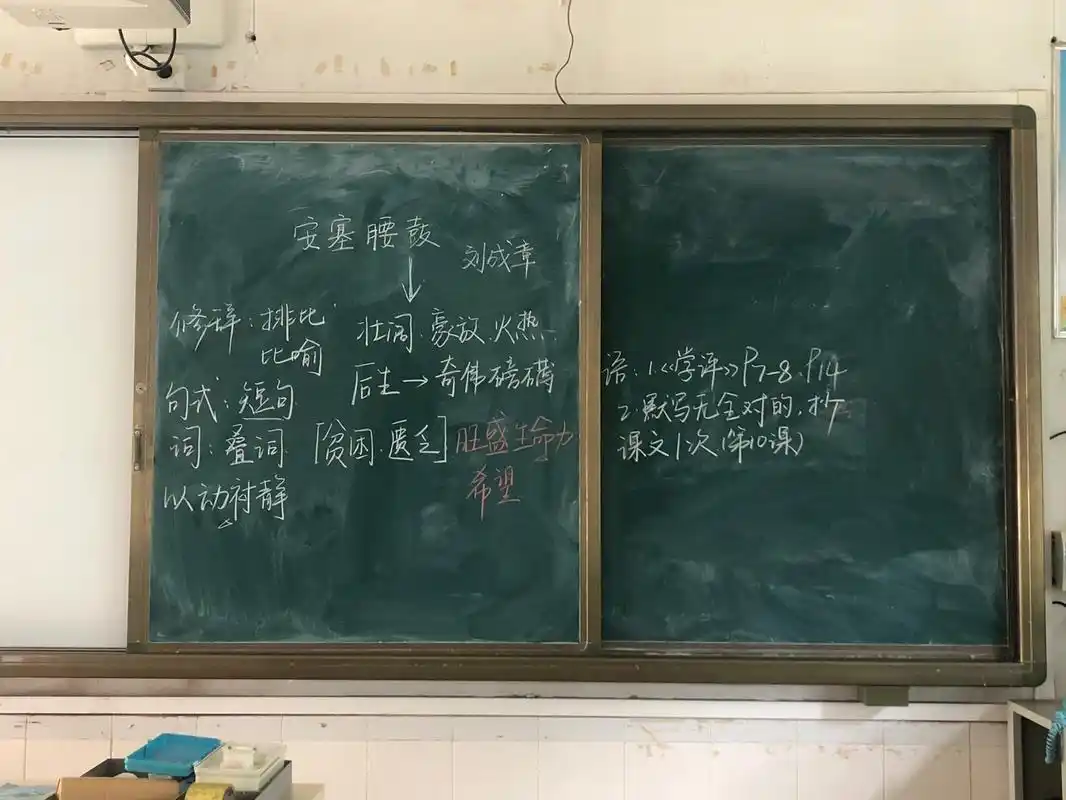 安塞腰鼓
刘成章
修辞：排比
比喻
壮阔、豪放、火热
后生→奇伟磅礴
句式：短句
词：叠词
[贫困、匮乏]
旺盛生命力
希望
以动衬静
语：1.《学评》P7-8、P14
2.默写无全对的，抄
课文1次（第10课）